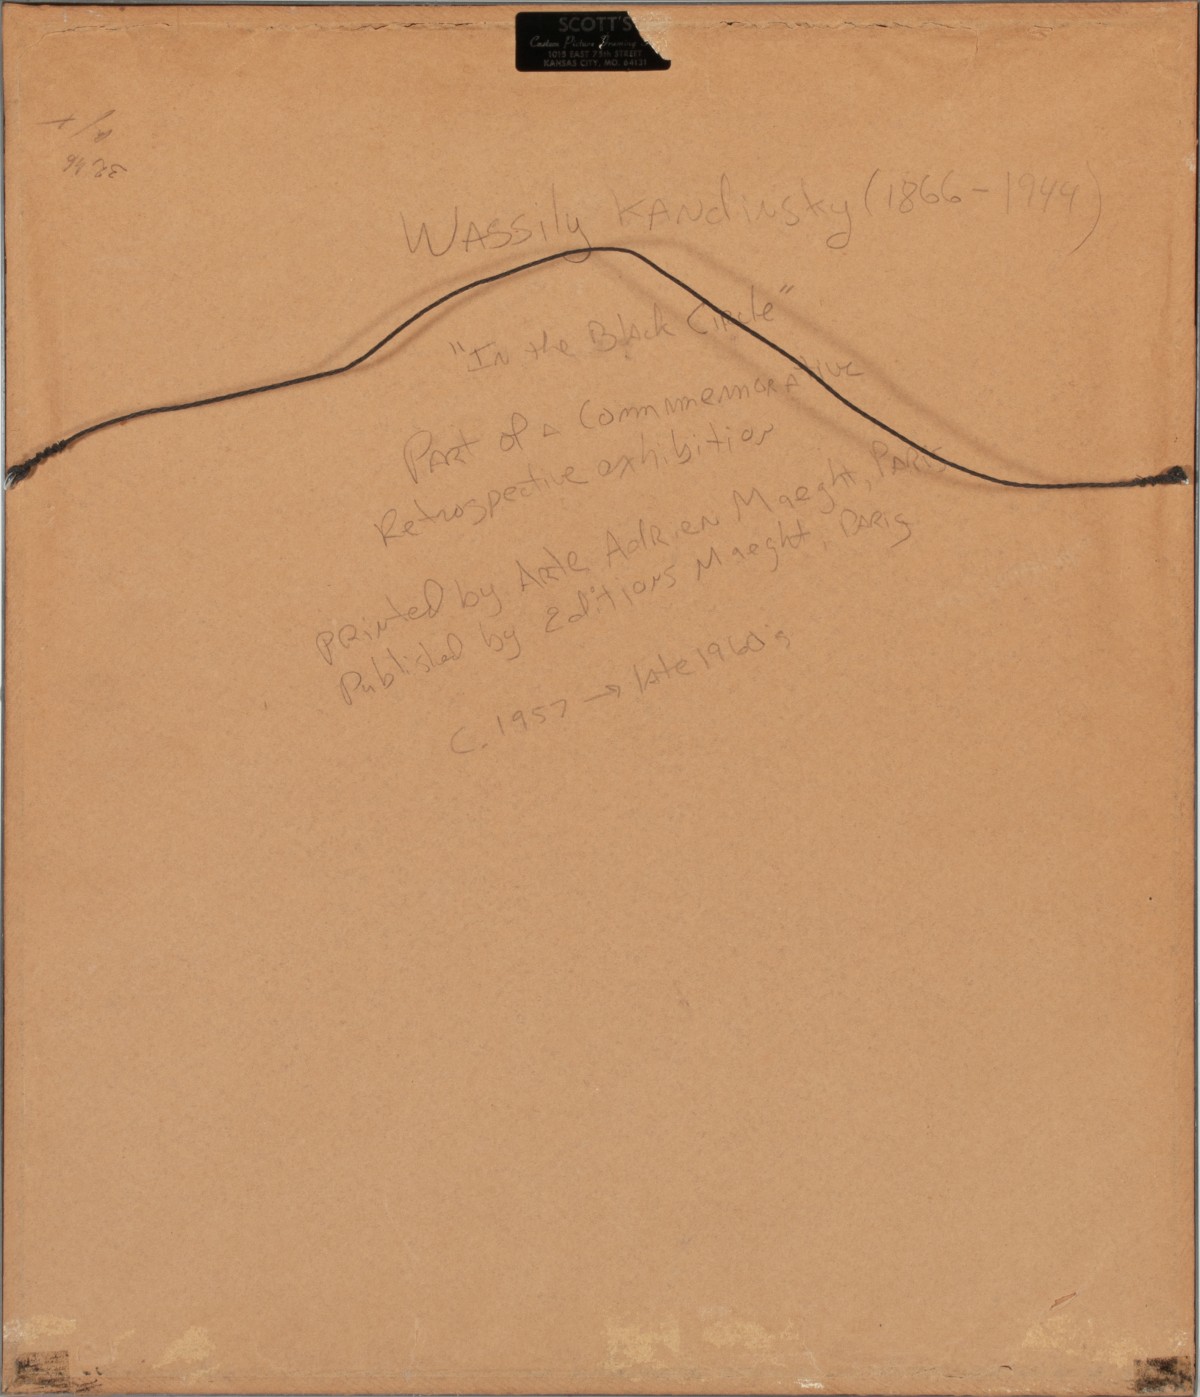 SCOTT'S
Custom Picture Framing
1015 EAST 75TH STREET
KANSAS CITY, MO. 64131
Wassily Kandinsky (1866-1944)
"In the Black Circle"
Part of a Commmemorative
Retrospective exhibition
Printed by Arte Adrien Maeght, Paris
Published by Editions Maeght, Paris
C. 1957 → late 1960's